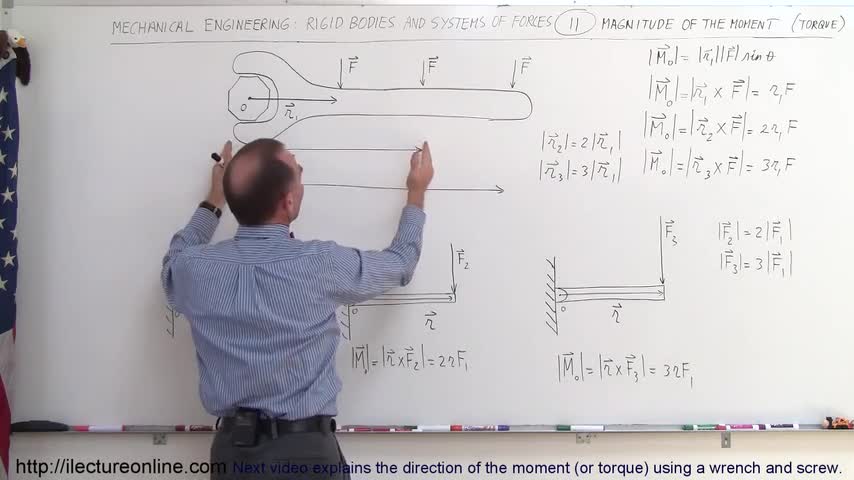 MECHANICAL ENGINEERING: RIGID BODIES AND SYSTEMS OF FORCES 11 MAGNITUDE OF THE MOMENT (TORQUE)
|M⃗₀| = |r⃗₁||F⃗| sin θ
F⃗ F⃗ F⃗
|M⃗₀| = |r⃗₁ × F⃗| = r₁F
O r⃗₁
|M⃗₀| = |r⃗₂ × F⃗| = 2r₁F
|r⃗₂| = 2|r⃗₁|
|M⃗₀| = |r⃗₃ × F⃗| = 3r₁F
|r⃗₃| = 3|r⃗₁|
F⃗₂ F⃗₃
|F⃗₂| = 2|F⃗₁|
|F⃗₃| = 3|F⃗₁|
O r⃗ O r⃗
|M⃗₀| = |r⃗ × F⃗₂| = 2rF₁
|M⃗₀| = |r⃗ × F⃗₃| = 3rF₁
http://ilectureonline.com Next video explains the direction of the moment (or torque) using a wrench and screw.